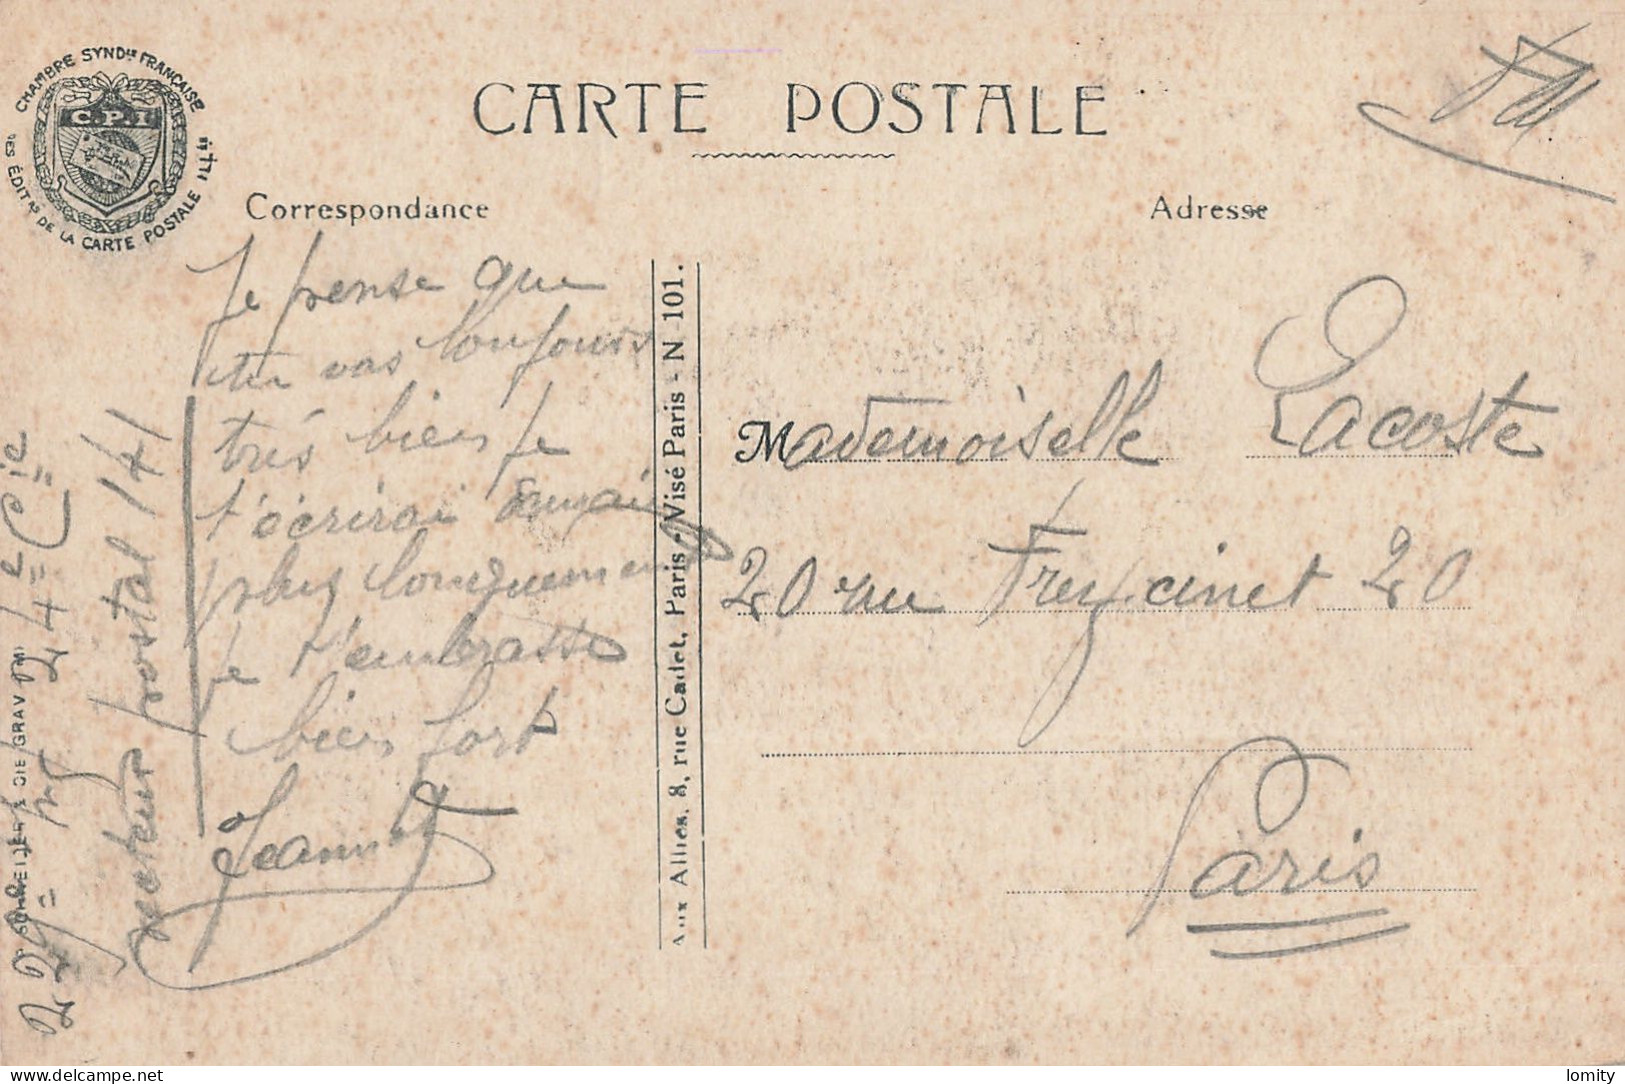 CARTE POSTALE
CHAMBRE SYND^le FRANÇAISE
DES ÉDIT^RS DE LA CARTE POSTALE ILL^ée
C.P.I
FM
Correspondance
Adresse
Je pense que
tu vas toujours
très bien je
t'écrirai
plus longuement
je t'embrasse
bien fort
Jeannot
229e 24e Cie
secteur postal 141
Aux Alliés, 8, rue Cadet, Paris - Visé Paris - N 101.
Mademoiselle Lacoste
20 rue Freycinet 20
Paris
lomity